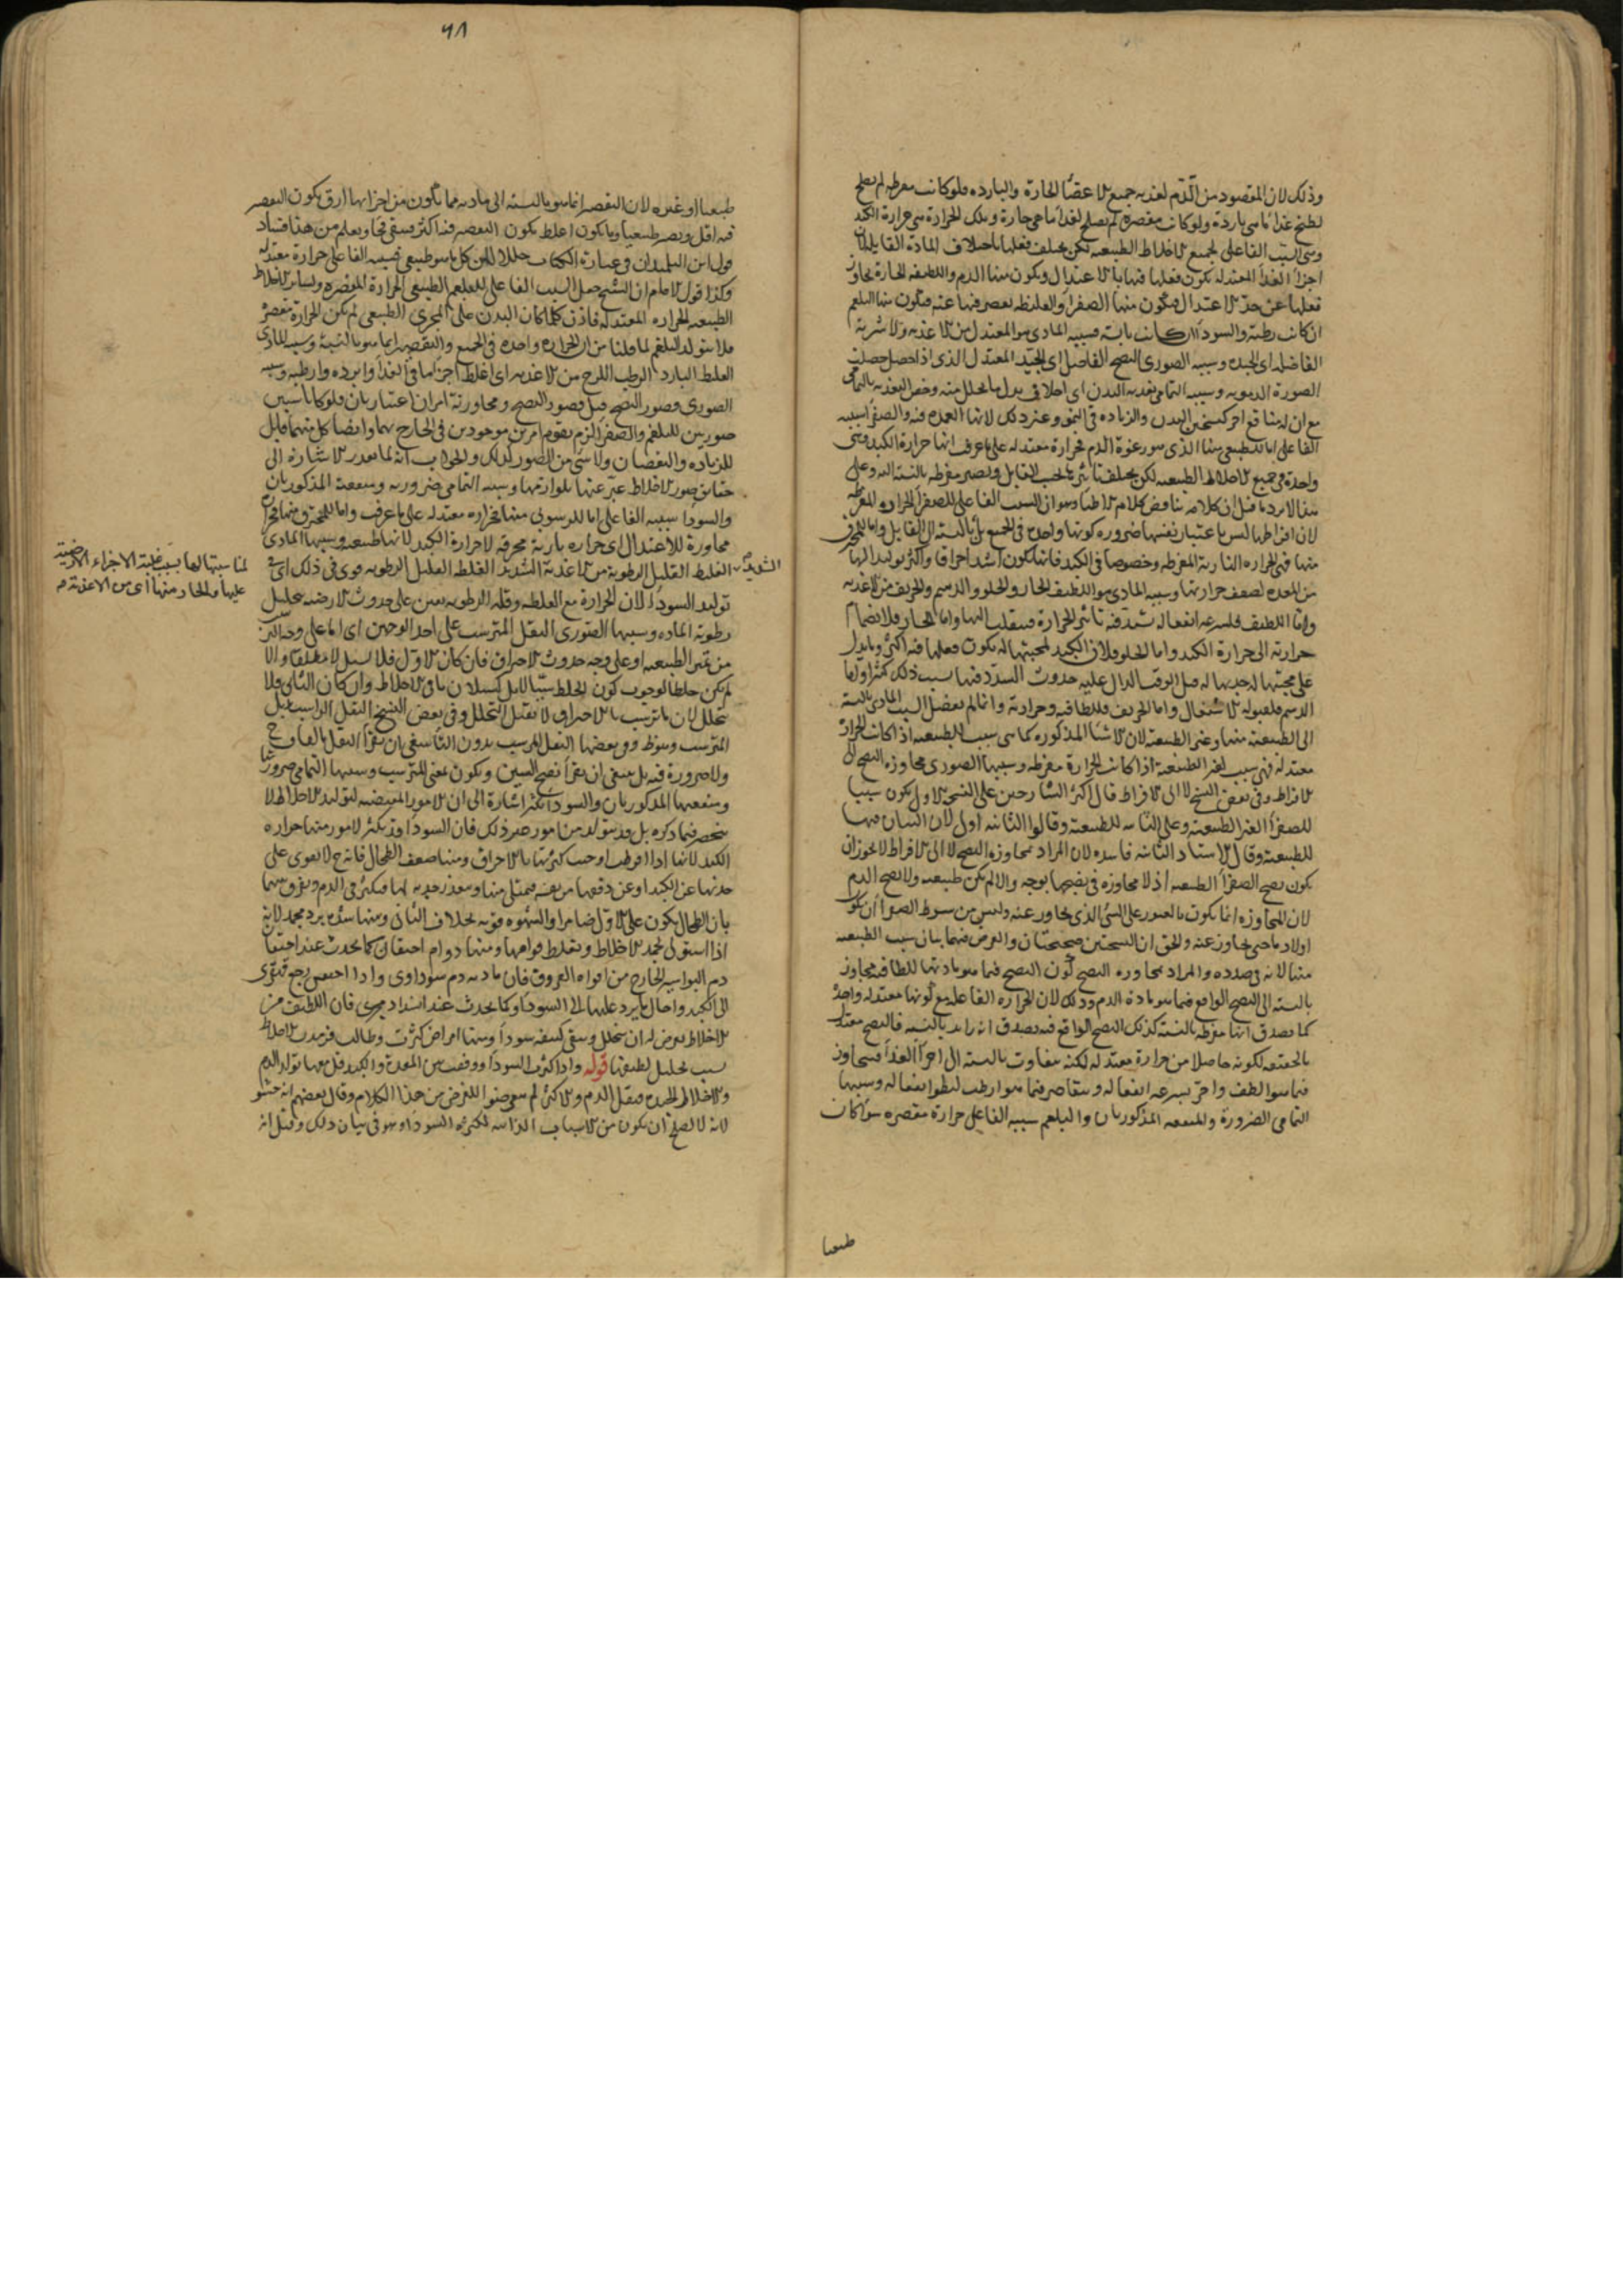 وذلك لان المقصود من الدم لغذية جميع الاعضا الحارة والباردة فلو كانت مفرطة لم يصلح
لطبخ غذا ما هي باردة ولو كانت مقصرة لم يصلح لغذا ما هي حارة وتلك الحرارة هي حرارة الكبد
وهي السبب الفاعلي لجميع الاخلاط الطبيعية لكن يختلف فعلها باختلاف المادة القابلة لان
اجزا الغذا المعتدلة يكون فعلها فيها بالاعتدال ويكون منها الدم واللطيفة الحارة يجاوز
فعلها عن حد الاعتدال فيكون منها الصفرا والغليظة يقصر فيها عنه فيكون منها البلغم
ان كانت رطبة والسودا ان كانت يابسة فسببه المادي هو المعتدل من الاغذية والاشربة
الفاضلة اي الجيدة وسببه الصوري النضج الفاضل اي الجيد المعتدل الذي اذا حصل حصلت
الصورة الدموية وسببه التمامي تغذية البدن اي اخلاف بدل ما يتحلل منه وخص التغذية بالتمامي
مع ان له منافع اخر كتسخين البدن والزيادة في النمو وغير ذلك لانها العمدة فيه والصفرا سببه
الفاعلي اما للطبيعي منها الذي هو رغوة الدم فحرارة معتدلة على ما عرف انها حرارة الكبد وهي
واحدة في جميع الاخلاط الطبيعية لكن يختلف تاثيرها بحسب القابل ويصير مفرطة بالنسبة اليه وعلى
هذا لا يرد ما قيل ان كلامه يناقض كلام الاطبا وهو ان السبب الفاعلي للصفرا الحرارة المفرطة
لان افراطها ليس باعتبار نفسها ضرورة كونها واحدة في الجميع بل بالنسبة الى القابل واما للمحترق
منها فهي الحرارة النارية المفرطة وخصوصا في الكبد فانها تكون اشد احراقا واكثر توليدا لها
من المعدة لضعف حرارتها وسببه المادي هو اللطيف الحار والحلو والدسم والحريف من الاغذية
واما اللطيف فلسرعة انفعاله يشتد فيه تاثير الحرارة فينقلب اليها واما الحار فلانضمام
حرارته الى حرارة الكبد واما الحلو فلان الكبد لمحبتها له يكون فعلها فيه اكثر ويدل
على محبتها له جذبها له قبل الوقت الدال عليه حدوث السدد فيها بسبب ذلك كثيرا واما
الدسم فلقبوله الاشتعال واما الحريف فللطافته وحرارته وانما لم يفصل السبب المادي بالنسبة
الى الطبيعية منها وغير الطبيعية لان الاشيا المذكورة كما هي سبب للطبيعية اذا كانت الحرارة
معتدلة فهي سبب لغير الطبيعية اذا كانت الحرارة مفرطة وسببها الصوري مجاوزة النضج الى
الافراط وفي بعض النسخ لا الى الافراط قال اكثر الشارحين على النسخة الاولى يكون سببا
للصفرا الغير الطبيعية وعلى الثانية للطبيعية وقالوا الثانية اولى لان البيان فيها
للطبيعية وقال الاستاد الثانية فاسدة لان المراد بمجاوزة النضج لا الى الافراط لا يجوز ان
يكون نضج الصفرا الطبيعية اذ لا مجاوزة في نضجها بوجه والا لم يكن طبيعية ولا نضج الدم
لان المجاوزة انما يكون بالعبور على الشي الذي يجاوز عنه وليس من شرط الصفرا ان يكون
اولا دما حتى يجاوز عنه والحق ان النسختين صحيحتان والغرض فيهما بيان سبب الطبيعية
منها لانه في صدده والمراد بمجاوزة النضج كون النضج فيما هو مادتها للطافته مجاوز
بالنسبة الى النضج الواقع فيما هو مادة الدم وذلك لان الحرارة الفاعلة مع كونها معتدلة واحدة
كما يصدق انها مفرطة بالنسبة كذلك النضج الواقع فيه يصدق انه زايد بالنسبة فالنضج معتدل
بالحقيقة لكونه حاصلا من حرارة معتدلة لكنه متفاوت بالنسبة الى اجزا الغذا فيتجاوز
فيما هو الطف واحر بسرعة انفعاله ويتقاصر فيما هو ارطب لبطو انفعاله وسببها
التمامي الضرورة والمنفعة المذكورتان والبلغم سببه الفاعل حرارة مقصرة سوا كان
طبيعيا
٦٨
طبيعيا او غيره لان التقصير انما هو بالنسبة الى مادته فما يكون من اجزايها ارق يكون التقصير
فيه اقل ويصير طبيعيا وما يكون اغلظ يكون التقصير فيه اكثر فيبقى فجا ويعلم من هذا فساد
قول ابن التلميذ ان في عبارة الكتاب خللا لان كل ما هو طبيعي فسببه الفاعلي حرارة معتدلة
وكذا قول الامام ان الشيخ جعل السبب الفاعلي للبلغم الطبيعي الحرارة المقصرة ولساير الاخلاط
الطبيعية الحرارة المعتدلة فاذن كلما كان البدن على المجرى الطبيعي لم يكن الحرارة مقصرة
فلا يتولد البلغم لما قلنا من ان الحرارة واحدة في الجميع والتقصير انما هو بالنسبة وسببه المادي
الغليظ البارد الرطب اللزج من الاغذية اي اغلظ اجزا ما في الغذا وابرده وارطبه وسببه
الصوري قصور النضج قيل قصور النضج ومجاوزته امران اعتباريان فلو كانا سببين
صوريين للبلغم والصفرا لزم تقوم امرين موجودين في الخارج بهما وايضا كل منهما قابل
للزيادة والنقصان ولا شي من الصور كذلك والجواب انه لما تعذر الاشارة الى
حقايق صور الاخلاط عبر عنها بلوازمها وسببه التمامي ضرورية ومنفعة المذكورتان
والسودا سببه الفاعلي اما للرسوبي منها فحرارة معتدلة على ما عرف واما للمحترق منها فحرارة
مجاوزة للاعتدال اي حرارة نارية محرقة لا حرارة الكبد لانها طبيعية وسببها المادي
الشديد الغليظ القليل الرطوبة من الاغذية الشديد الغلظ القليل الرطوبة قوي في ذلك اي في
لمناسبتها لها بسبب غلبة الاجزاء الارضية
عليها والحار منها اي من الاغذية
توليد السودا لان الحرارة مع الغلظ وقلة الرطوبة يعين على حدوث الارضية بتحليل
رطوبة المادة وسببها الصوري الثفل المترسب على احد الوجهين اي اما على وجه التميز
من تميز الطبيعة او على وجه حدوث الاحتراق فان كان الاول فلا يسيل لا مطلقا والا
لم يكن خلطا لوجوب كون الخلط سيالا بل كسيلان باقي الاخلاط وان كان الثاني فلا
يتحلل لان ما ترسب بالاحتراق لا يقبل التحلل وفي بعض النسخ الثفل الراسب بدل
المترسب وفي بعضها الثفل المرسب بدون التا
ولا ضرورة فيه بل ينبغي ان يقرا بفتح السين ويكون بمعنى المترسب وسببها التمامي ضرورتها
ومنفعتها المذكورتان والسودا تكثر اشارة الى ان الامور المقتضية لتوليد الاخلاط لا
ينحصر فيما ذكره بل قد يتولد من امور غير ذلك فان السودا قد يكثر لامور منها حرارة
الكبد لانها اذا افرطت اوجبت كثرتها بالاحراق ومنها ضعف الطحال فانه ح لا يقوى على
جذبها عن الكبد او عن دفعها فيمتلي منها ويتعذر جذبه لها فيكثر في الدم ويفرق بينهما
بان الطحال يكون على الاول ضامرا والشهوة قوية بخلاف الثاني ومنها شدة برد مجمد لانه
اذا استولى يجمد الاخلاط ويغلظ قوامها ومنها دوام احتقان كما يحدث عند احتقان
دم البواسير الخارج من افواه العروق فان مادته دم سوداوي واذا احتقن رجع قهقرى
الى الكبد واحال ما يرد عليها الى السودا وكما يحدث عند انسداد مجرى فان اللطيف من
الاخلاط يعرض له ان يتحلل ويبقى كثيفه سودا ومنها امراض كثرت وطالت فرمدت الاخلاط
بسبب تحليل لطيفها قوله واذا كثرت السودا ووقفت بين المعدة والكبد قل معها تولد الدم
والاخلاط الجيدة فيقل الدم والاكثر لم يتعرضوا للغرض من هذا الكلام وقال بعضهم انه حشو
لانه لا يصلح ان يكون من الاسباب الذاتية لكثرة السودا وهو في بيان ذلك وقيل انه